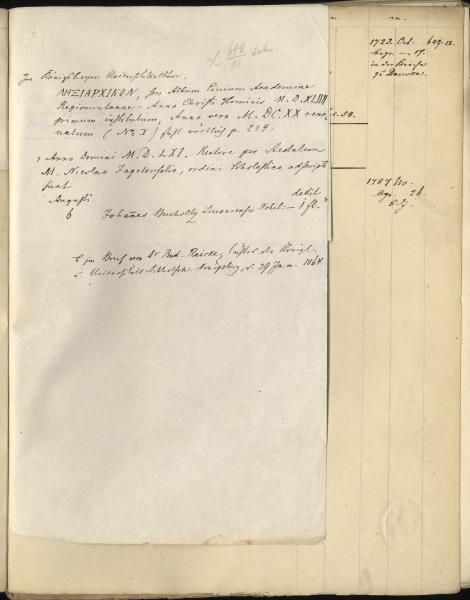 688
III
Im Königsberger Universitätsalbum,
ΛΗΞΙΑΡΧΙΚΟΝ, seu Album Civium Academiae
Regiomontanae Anno Christi Hominis M.D.XLIIII
primum institutum, Anno vero M.DC.XX reno-
vatum (No I.) steht wörtlich p. 234:
Anno Domini M.D.LXI. Rectore per Aestatem
M. Nicolao Jagenteufelio, ordini Scholastico adscripti
sunt
Augusti
dedit
6 Johannes Bucholtz Nobil: – 1 fl.
Brief von Dr Rud. Reicke, Custos der Königl.
u. Universitäts Bibliothek. Königsberg, d. 29 Jan. 1864
1723. Oct.
17.
in der Kirche
zu
1787 No.
26.